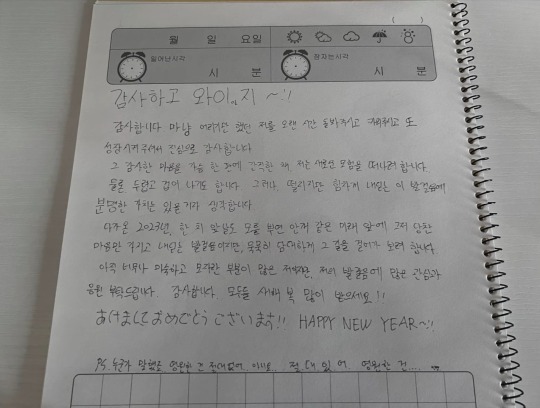 ( )
월 일 요일
일어난시각
시 분
잠자는시각
시 분
감사하고 와이 지 ~!!
감사합니다 마냥 어리기만 했던 저를 오랜 시간 돌봐주시고 키워주시고 또
성장시켜주셔서 진심으로 감사합니다
그 감사한 마음을 가슴 한 켠에 간직한 채, 저는 새로운 모험을 떠나려 합니다.
물론 두렵고 겁이 나기도 합니다. 그러나 떨리지만 힘차게 내딛은 이 발걸음에
분명한 가치는 있을거라 생각합니다
다가온 2023년, 한 치 앞날도 모를 뿌연 안개 같은 미래 앞에 그저 당찬
마음만 가지고 내딛는 발걸음이지만, 묵묵히 담대하게 그 길을 걸어가 보려 합니다.
아직 너무나 미숙하고 모자란 부분이 많은 저이지만, 저의 발걸음에 많은 관심과
응원 부탁드립니다. 감사합니다. 모두들 새해 복 많이 받으세요!!
あけましておめでとうございます!! HAPPY NEW YEAR~!!
PS. 누군가 말했죠 영원한 건 절대없어.. 절대있어, 영원한 건....